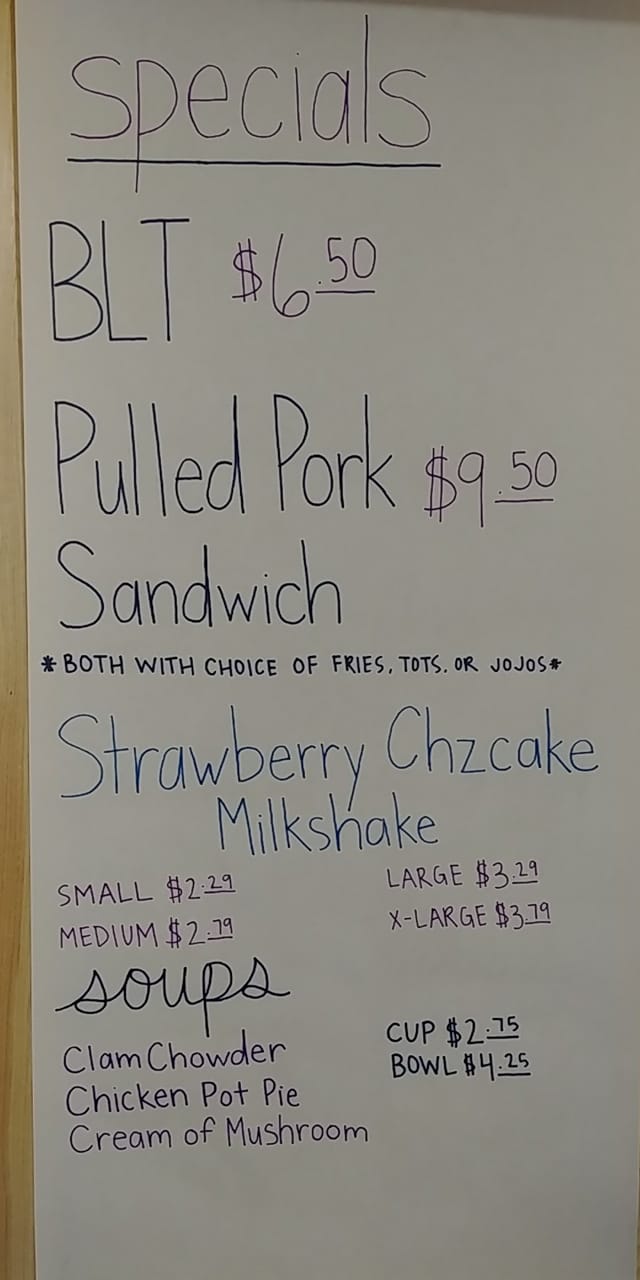 Specials
BLT $6.50
Pulled Pork $9.50
Sandwich
*BOTH WITH CHOICE OF FRIES, TOTS. OR JOJOS*
Strawberry Chzcake
Milkshake
SMALL $2.29 LARGE $3.29
MEDIUM $2.79 X-LARGE $3.79
soups
CUP $2.75
Clam Chowder BOWL $4.25
Chicken Pot Pie
Cream of Mushroom